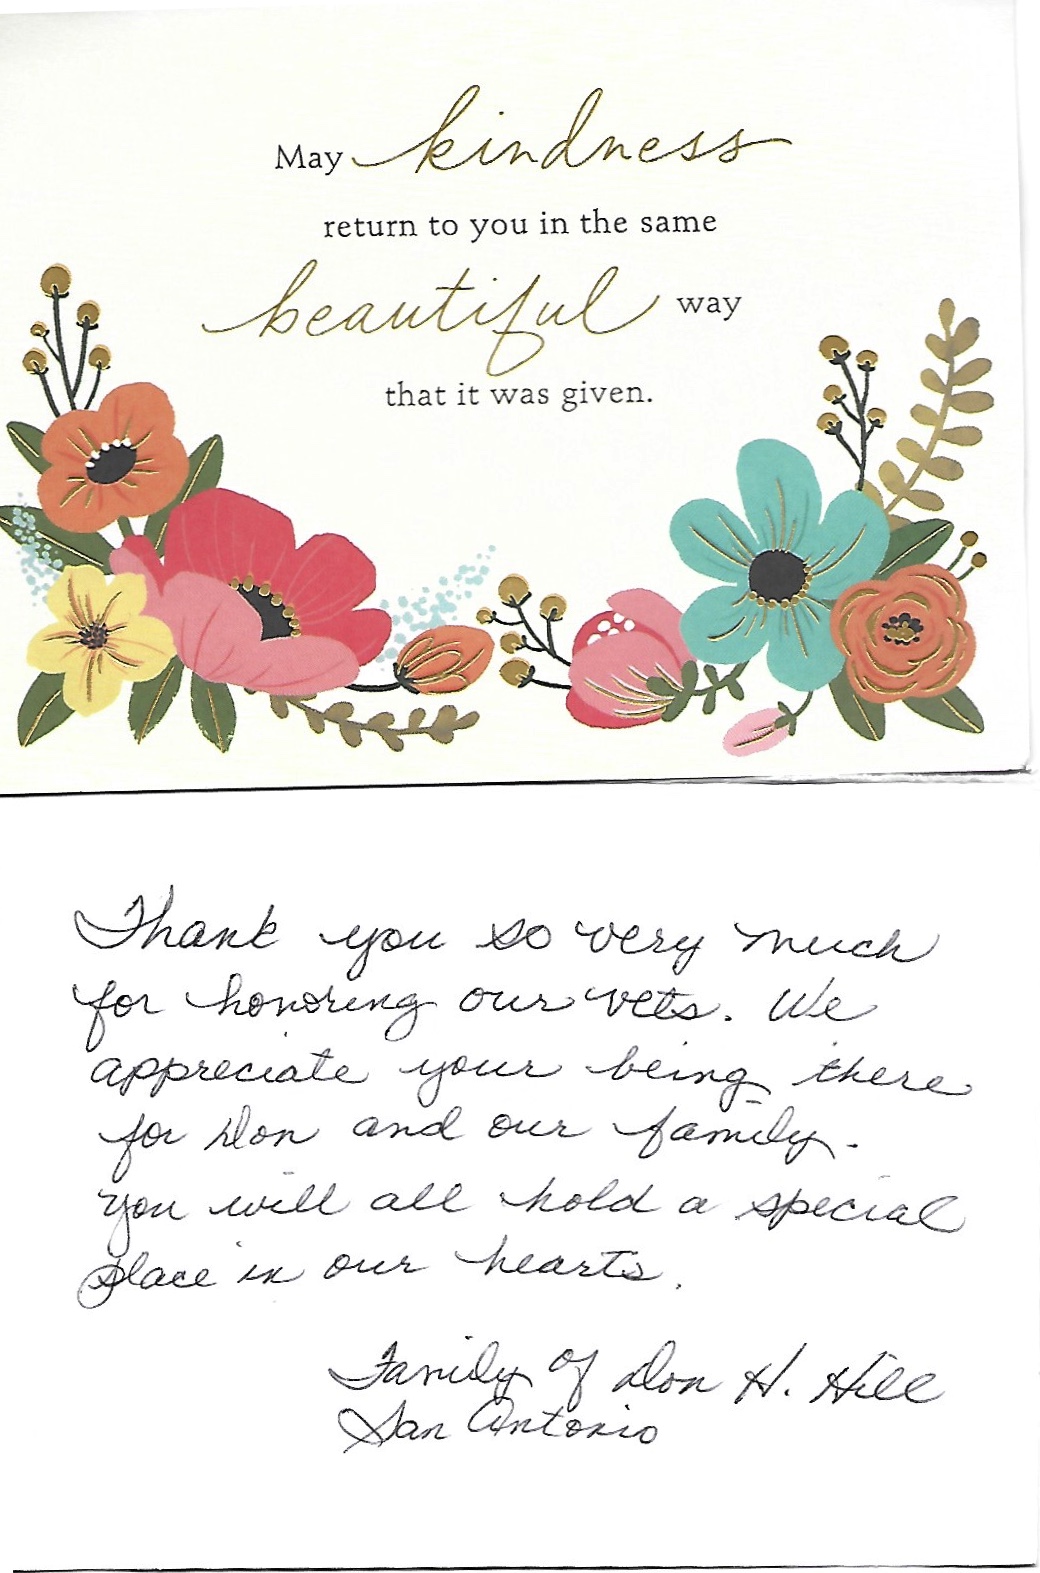 May kindness
return to you in the same
beautiful way
that it was given.
Thank you so very much
for honoring our vets. We
appreciate your being there
for Don and our family.
You will all hold a special
place in our hearts.
Family of Don H. Hill
San Antonio